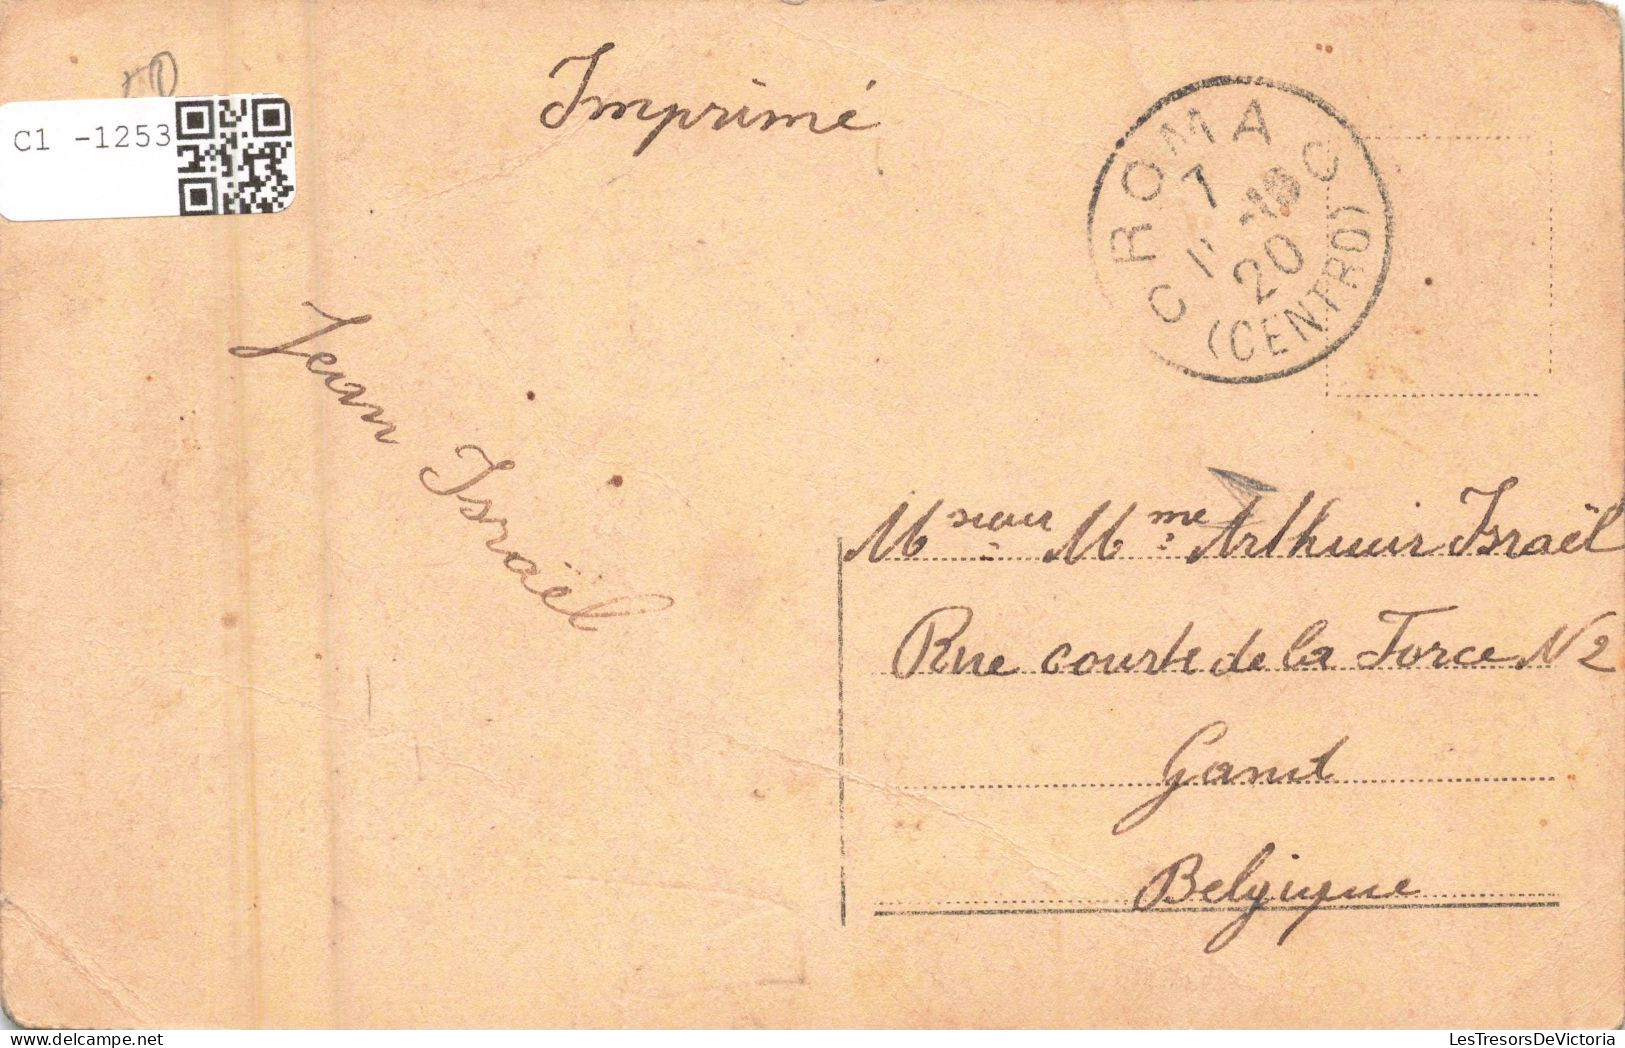 Imprimé
C1 -1253
ROMA
C C
7
20
(CENTRO)
Jean Israël
Msieur Mme Arthuur Israël
Rue courte de la Force N2
Gand
Belgique
LesTresorsDeVictoria